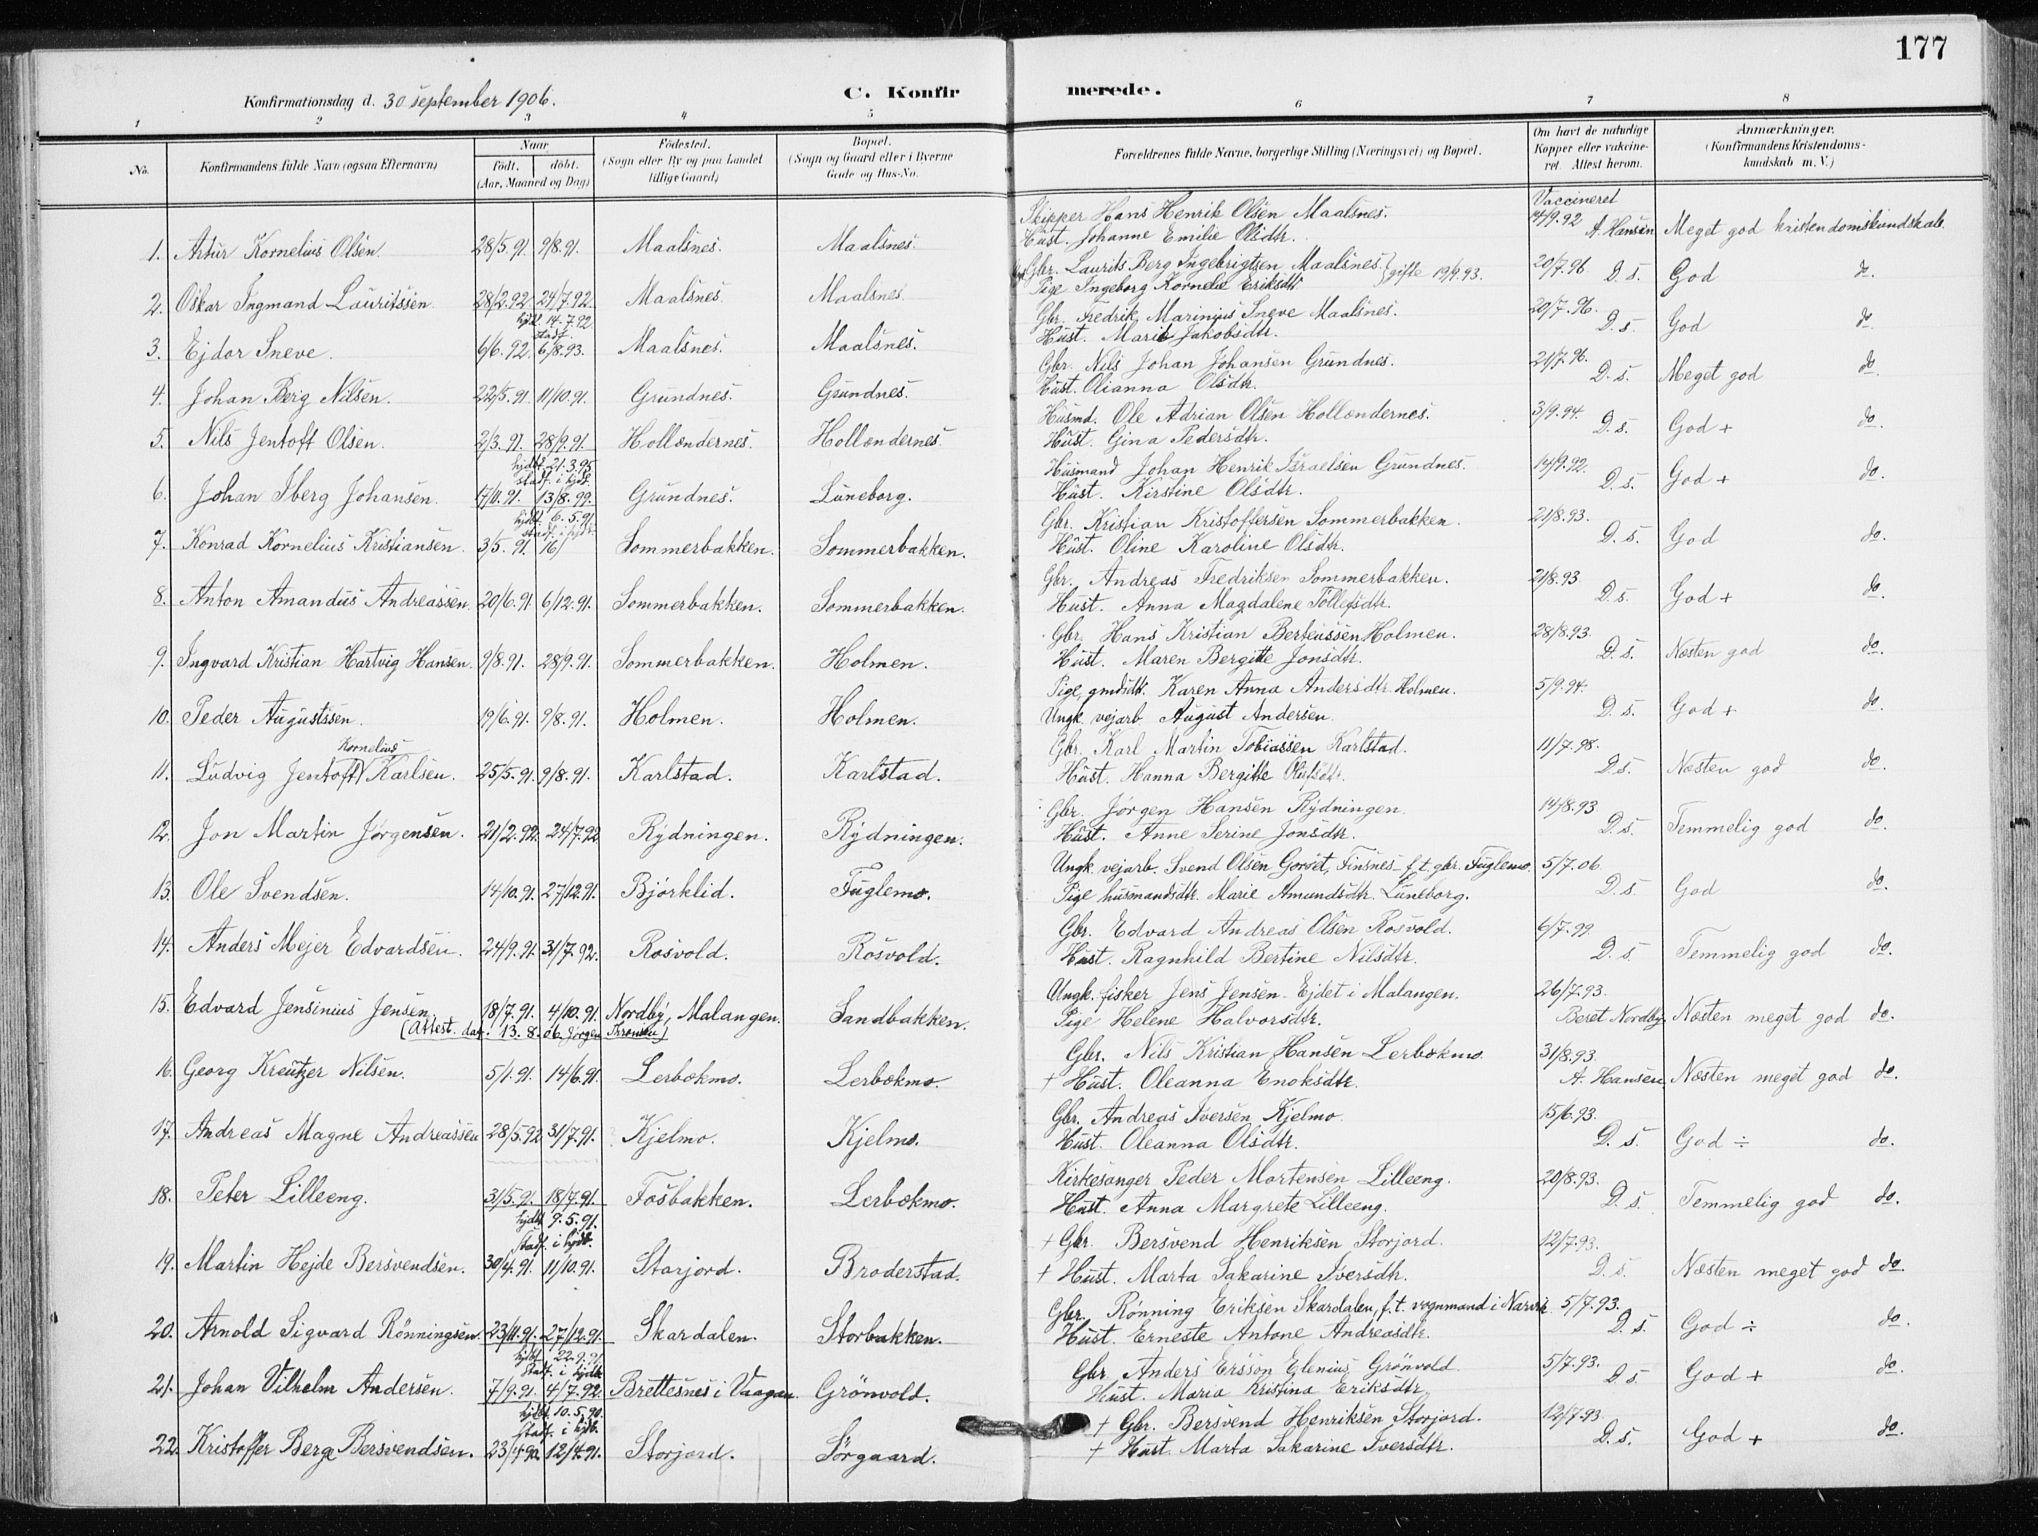 177
Konfirmationsdag d. 30 september 1906.
C. Konfirmerede.
1 2 3 4 5 6 7 8
No.
Konfirmandens fulde Navn (ogsaa Efternavn)
Naar
født. døbt.
(Aar, Maaned og Dag)
Fødested.
(Sogn eller By og paa Landet
tillige Gaard)
Bopæl.
(Sogn og Gaard eller i Byerne
Gade og Hus-No.
Forældrenes fulde Navne, borgerlige Stilling (Næringsvei) og Bopæl.
Om havt de naturlige
Kopper eller vaccine-
ret. Attest herom.
Anmærkninger.
(Konfirmandens Kristendoms-
kundskab m. V.)
Skipper Hans Henrik Olsen Maalsnes. Vaccineret 14/9.92
1. Artur Kornelius Olsen. 28/5.91. 9/8.91. Maalsnes. Maalsnes. Hust. Johanne Emilie Olsdtr. A. Hansen Meget god kristendomskundskab.
Gbr. Laurits Berg Ingebrigtsen Maalsnes. } gifte 19/9.93. 20/7.96
2. Oskar Ingmand Lauritssen 28/2.92. 24/7.92. Maalsnes. Maalsnes. Pige Ingeborg Kornelie Eriksdtr D. s. God do.
hjdbt. 14.7.92
stadf.
Gbr. Fredrik Marinius Sneve Maalsnes. 20/7.96.
3. Ejdor Sneve. 6/6.92. 6/8.93. Maalsnes. Maalsnes. Hust. Marie Jakobsdtr. D. s. God do
Gbr. Nils Johan Johansen Grundnes. 21/7.96.
4. Johan Berg Nilsen. 22/5.91. 11/10.91. Grundnes. Grundnes. Hust. Olianna Olsdtr. D. s. Meget god do.
Husmd. Ole Adrian Olsen Hollændernes. 3/9.94.
5. Nils Jentoft Olsen. 2/3.91. 28/9.91. Hollændernes. Hollændernes. Hust. Gina Pedersdtr. D. s. God + do.
hjdbt. 21.3.95
stadf. i hjdt.
Husmand Johan Henrik Israelsen Grundnes. 14/9.92.
6. Johan Iberg Johansen. 17/11.91. 13/8.99. Grundnes. Luneborg. Hust. Kirstine Olsdtr. D. s. God + do.
hjdbt. 6.5.91
stadf. i hjdt.
Gbr. Kristian Kristoffersen Sommerbakken. 21/8.93.
7. Konrad Kornelius Kristiansen. 3/5.91. 16/ Sommerbakken. Sommerbakken. Hust. Oline Karoline Olsdtr. D. s. God do.
Gbr. Andreas Fredriksen Sommerbakken. 21/8.93
8. Anton Amandus Andreassen. 20/6.91. 6/12.91. Sommerbakken. Sommerbakken. Hust. Anna Magdalene Tollefsdtr. D. s. God + do.
Gbr. Hans Kristian Berteussen Holmen. 28/8.93.
9. Ingvard Kristian Hartvig Hansen. 9/8.91. 28/9.91. Sommerbakken. Holmen. Hust. Maren Bergitte Jonsdtr. D. s. Næsten god do.
Pige, gmdsdtr. Karen Anna Andersdtr. Holmen. 5/9.94.
10. Peder Augustssen. 19/6.91. 9/8.91. Holmen. Holmen. Ungk. vejarb. August Andersen. D. s. God + do.
Kornelius
Gbr. Karl Martin Tobiassen Karlstad. 11/7.98.
11. Ludvig Jentoft Karlsen. 25/5.91. 9/8.91. Karlstad. Karlstad. Hust. Hanna Bergitte Olufsdtr. D. s. Næsten god do.
Gbr. Jørgen Hansen Rydningen. 14/8.93
12. Jon Martin Jørgensen. 21/2.92. 24/7.92 Rydningen. Rydningen. Hust. Anne Serine Jonsdtr. D. s. Temmelig god do.
Ungk. vejarb. Svend Olsen Finsnes - f.t. gbr. Fuglemo. 5/7.06
13. Ole Svendsen. 14/10.91. 27/12.91. Bjørklid. Fuglemo. Pige husmandsdtr. Marie Amundsdtr. Luneborg. D. s. God do.
Gbr. Edvard Andreas Olsen Rosvold. 6/7.99.
14. Anders Mejer Edvardsen. 24/9.91. 31/7.92. Rosvold. Rosvold. Hust. Ragnhild Bertine Nilsdtr. D. s. Temmelig god do.
Ungk. fisker Jens Jensen Ejdet i Malangen. 26/7.93.
15. Edvard Jensinius Jensen 18/7.91. 4/10.91. Nordby, Malangen. Sandbakken. Pige Helene Halvorsdtr. Beret Nordby. Næsten meget god do.
(Attest. dat. 13.8.06. Jørgen)
Gbr. Nils Kristian Hansen Lerbækmo. 31/8.93.
16. Georg Kreutzer Nilsen. 5/1.91. 14/6.91. Lerbækmo. Lerbækmo. + Hust. Oleanna Enoksdtr. A. Hansen Næsten meget god do.
Gbr. Andreas Iversen Kjelmo. 15/6.93.
17. Andreas Magne Andreassen 28/5.92 31/7.91. Kjelmo. Kjelmo. Hust. Oleanna Olsdtr. D. s. God ÷ do.
Kirkesanger Peder Mortensen Lilleeng. 20/8.93.
18. Peter Lilleeng. 31/5.91. 18/7.91. Fosbakken. Lerbækmo. Hust. Anna Margrete Lilleeng. D. s. Temmelig god do.
hjdbt. 9.5.91.
stadf. i hjdt.
+ Gbr. Bersvend Henriksen Storjord. 12/7.93.
19. Martin Hejde Bersvendsen. 30/4.91. 11/10.91. Storjord. Broderstad. + Hust. Marta Sakarine Iversdtr. D. s. Næsten meget god do.
Gbr. Rønning Eriksen Skardalen, f.t. vognmand i Narvik 5/7.93.
20. Arnold Sigvard Rønningsen. 23/11.91. 27/12.91. Skardalen. Storbakken. Hust. Erneste Antone Andreasdtr. D. s. God ÷ do.
hjdbt. 22.9.91
stadf. i hjdt.
Gbr. Anders Ersson Elenius Grønvold. 5/7.93.
21. Johan Vilhelm Andersen. 7/9.91. 4/7.92. Brettesnes i Vaagan. Grønvold. Hust. Maria Kristina Eriksdtr. D. s. God + do
hjdbt. 10.5.90.
stadf. i hjdt.
+ Gbr. Bersvend Henriksen Storjord. 12/7.93
22. Kristoffer Berge Bersvendsen. 23/4.90. 12/4.91. Storjord. Sørgaard. + Hust. Marta Sakarine Iversdtr. D. s. God + do.